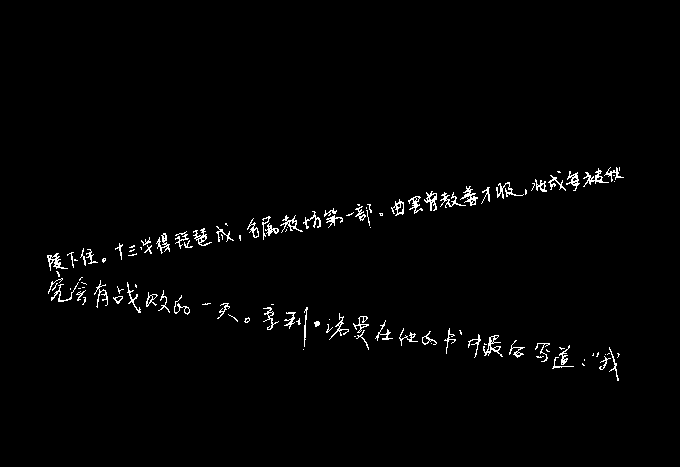 陵下住。十三学得琵琶成，名属教坊第一部。曲罢曾教善才服，妆成每被
究会有战败的一天。亨利·洛曼在他的书中最后写道：“我